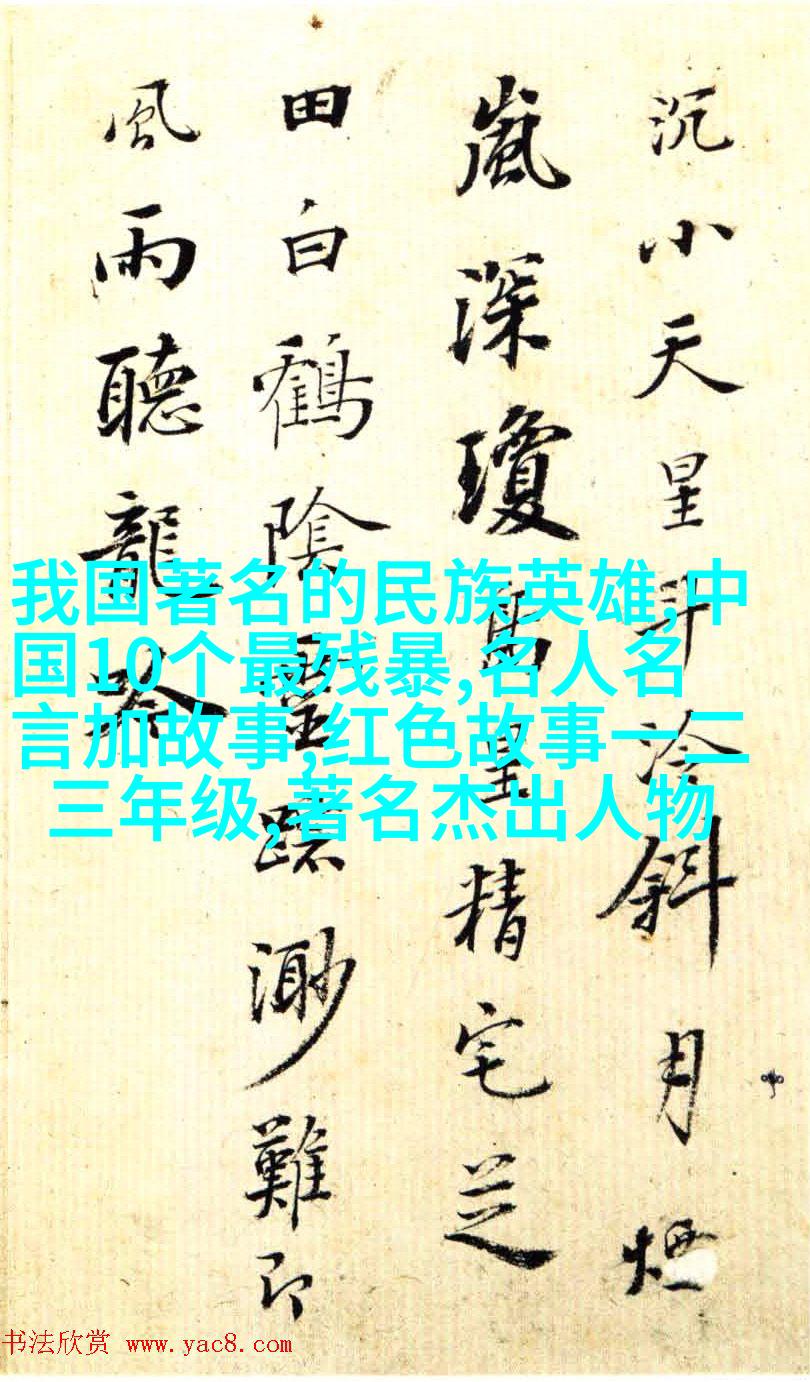 我国著名的民族英雄,中
国10个最残暴,名人名
言加故事,红色故事一二
三年级,著名杰出人物
沉小天星斗冷斜月煙
嵐深瓊皇精宅芝
田白鶴陰渺難即
風雨聽龍
书法欣赏 www.yac8.com